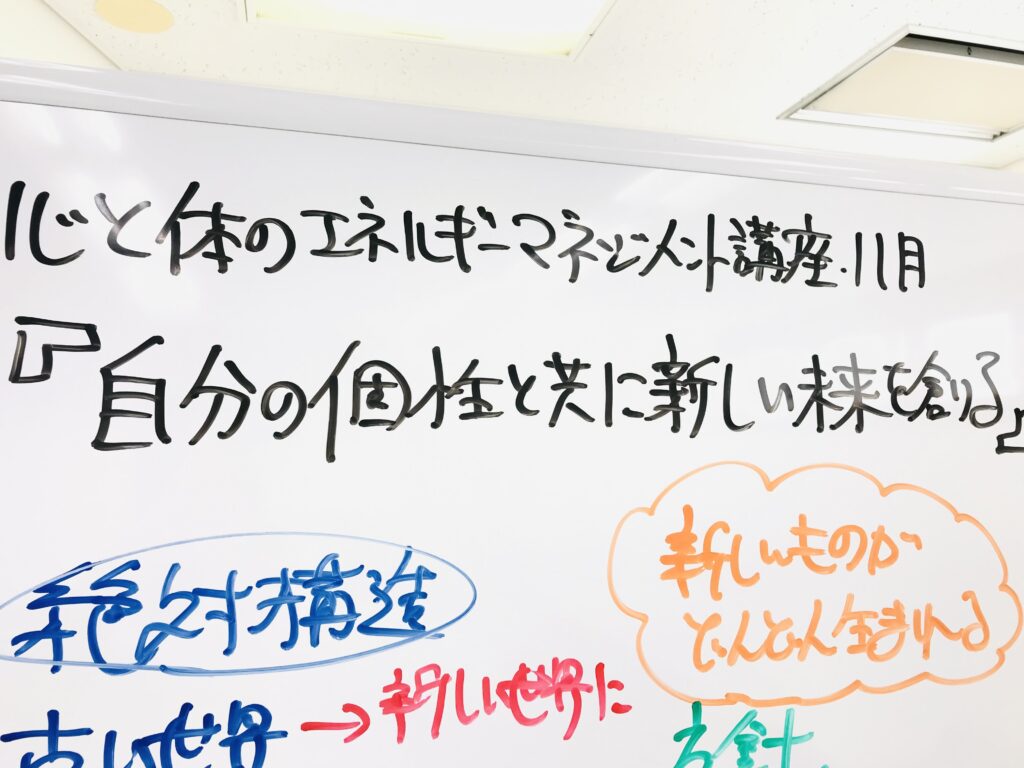 心と体のエネルギーマネジメント講座.11月
『自分の個性と共に新しい未来を創る』
絶対構造
新しいものが
どんどん生まれる
古い世界→新しい世界に
方針